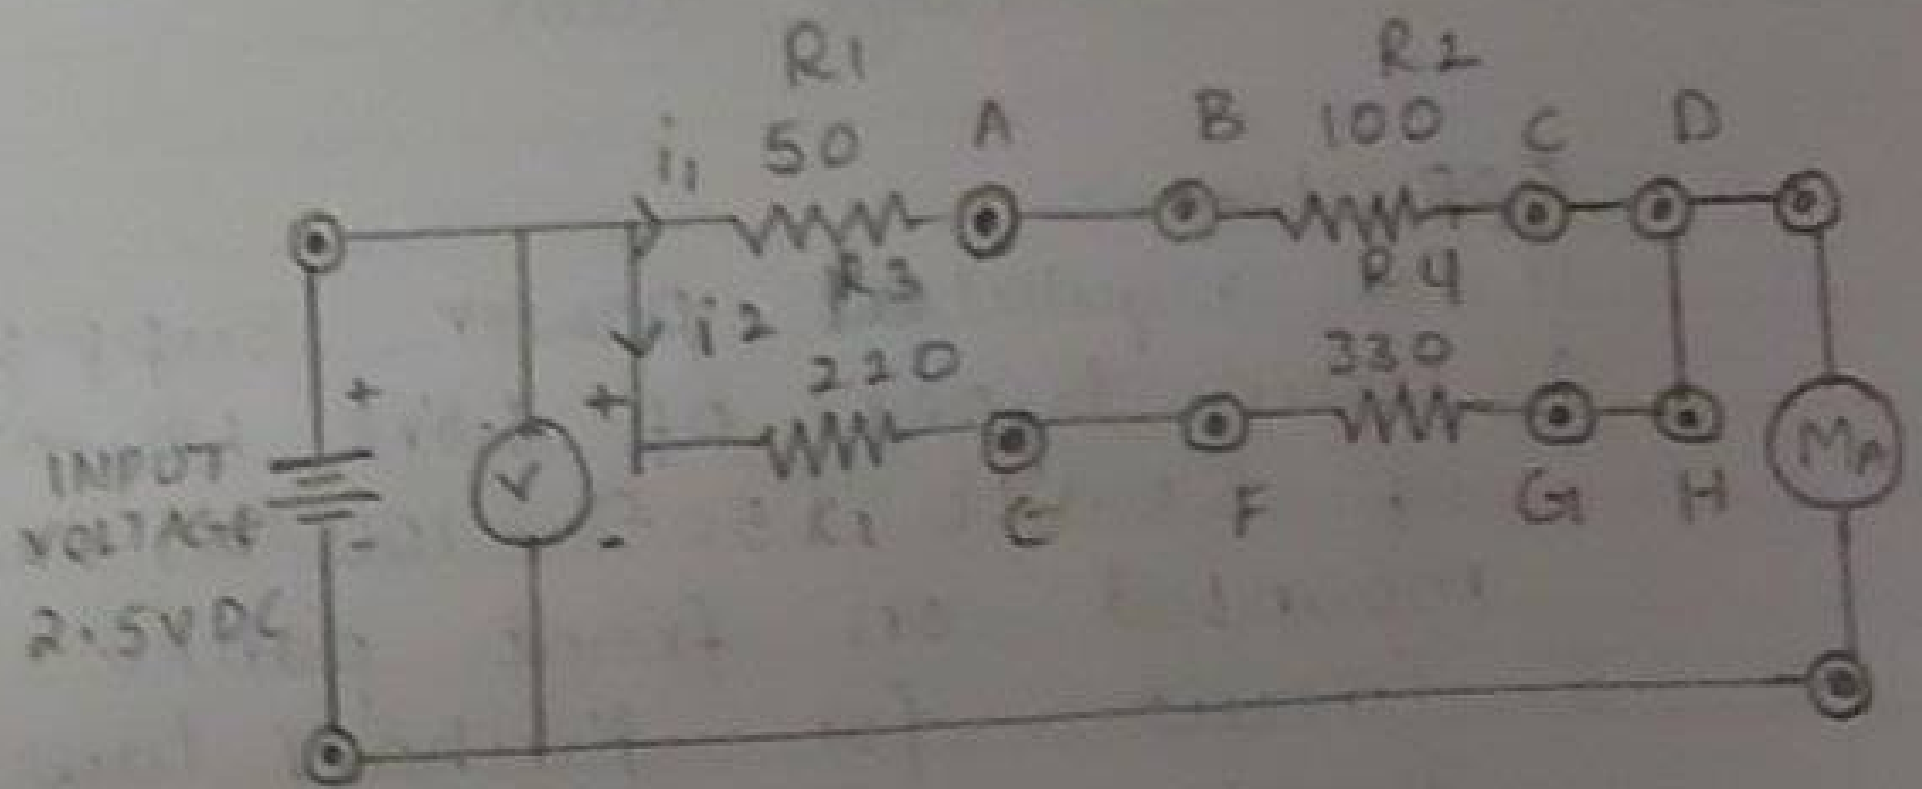 R1
R2
50
A
B
100
C
D
i1
R3
R4
i2
220
330
+
+
INPUT
VOLTAGE
2.5V DC
-
V
-
E
F
G
H
MA